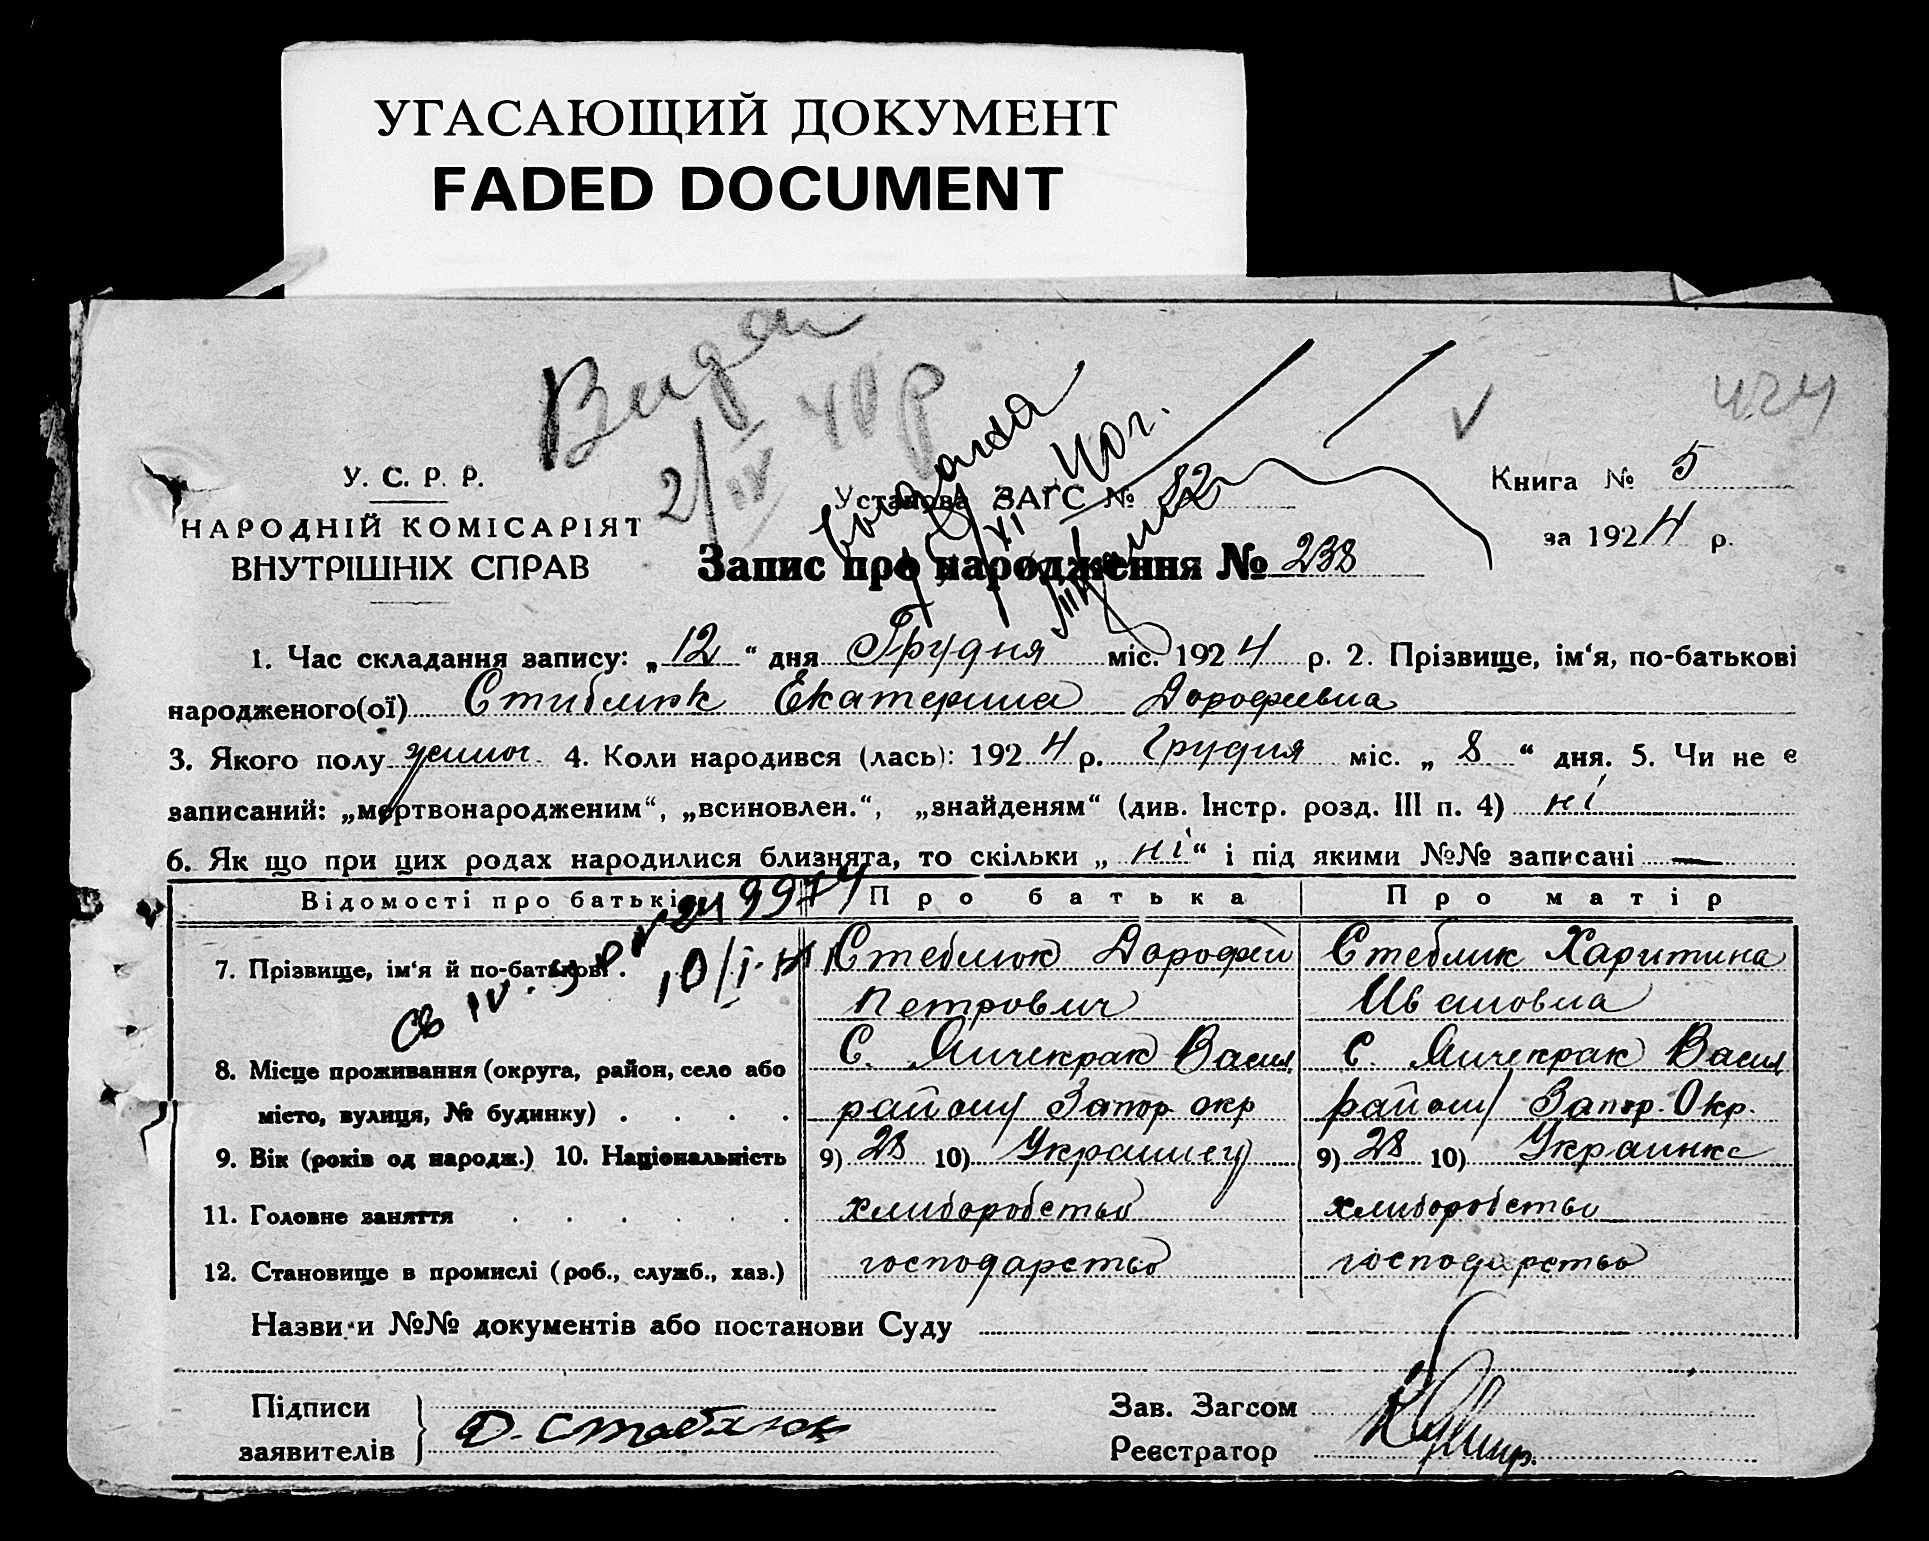 УГАСАЮЩИЙ ДОКУМЕНТ
FADED DOCUMENT
424
У. С. Р. Р.
НАРОДНІЙ КОМІСАРІЯТ
ВНУТРІШНІХ СПРАВ
Установа ЗАГС № 82
Книга № 5
за 1924 р.
Запис про народження № 238
1. Час складання запису: „12“ дня Грудня міс. 1924 р. 2. Прізвище, ім‘я, по-батькові
народженого(ої) Стиблюк Екатерина Дорофеевна
3. Якого полу женног. 4. Коли народився (лась): 1924 р. Грудня міс. „8“ дня. 5. Чи не є
записаний: „мертвонародженим“, „всиновлен.“, „знайденям“ (див. Інстр. розд. III п. 4) ні
6. Як що при цих родах народилися близнята, то скільки „ні“ і під якими №№ записані —
Відомості про батьків Про батька Про матір
7. Прізвище, ім‘я й по-батькові . Стеблюк Дорофей Стеблик Харитина
Петрович Ивановна
8. Місце проживання (округа, район, село або С. Янчекрак Васил С. Янчекрак Васил
місто, вулиця, № будинку) . . . . району Запор окр району Запор. Окр.
9. Вік (років од народж.) 10. Національність 9) 28 10) Украинец 9) 28 10) Украинка
11. Головне заняття . . . . . . хлиборобство хлиборобство
12. Становище в промислі (роб., служб., хаз.) господарство господарство
Назви и №№ документів або постанови Суду
Підписи
заявителів Д. Стеблюк
Зав. Загсом
Реєстратор